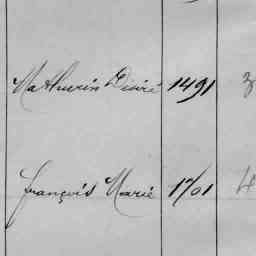 Mathurin Désiré 1491
François Marie 1701